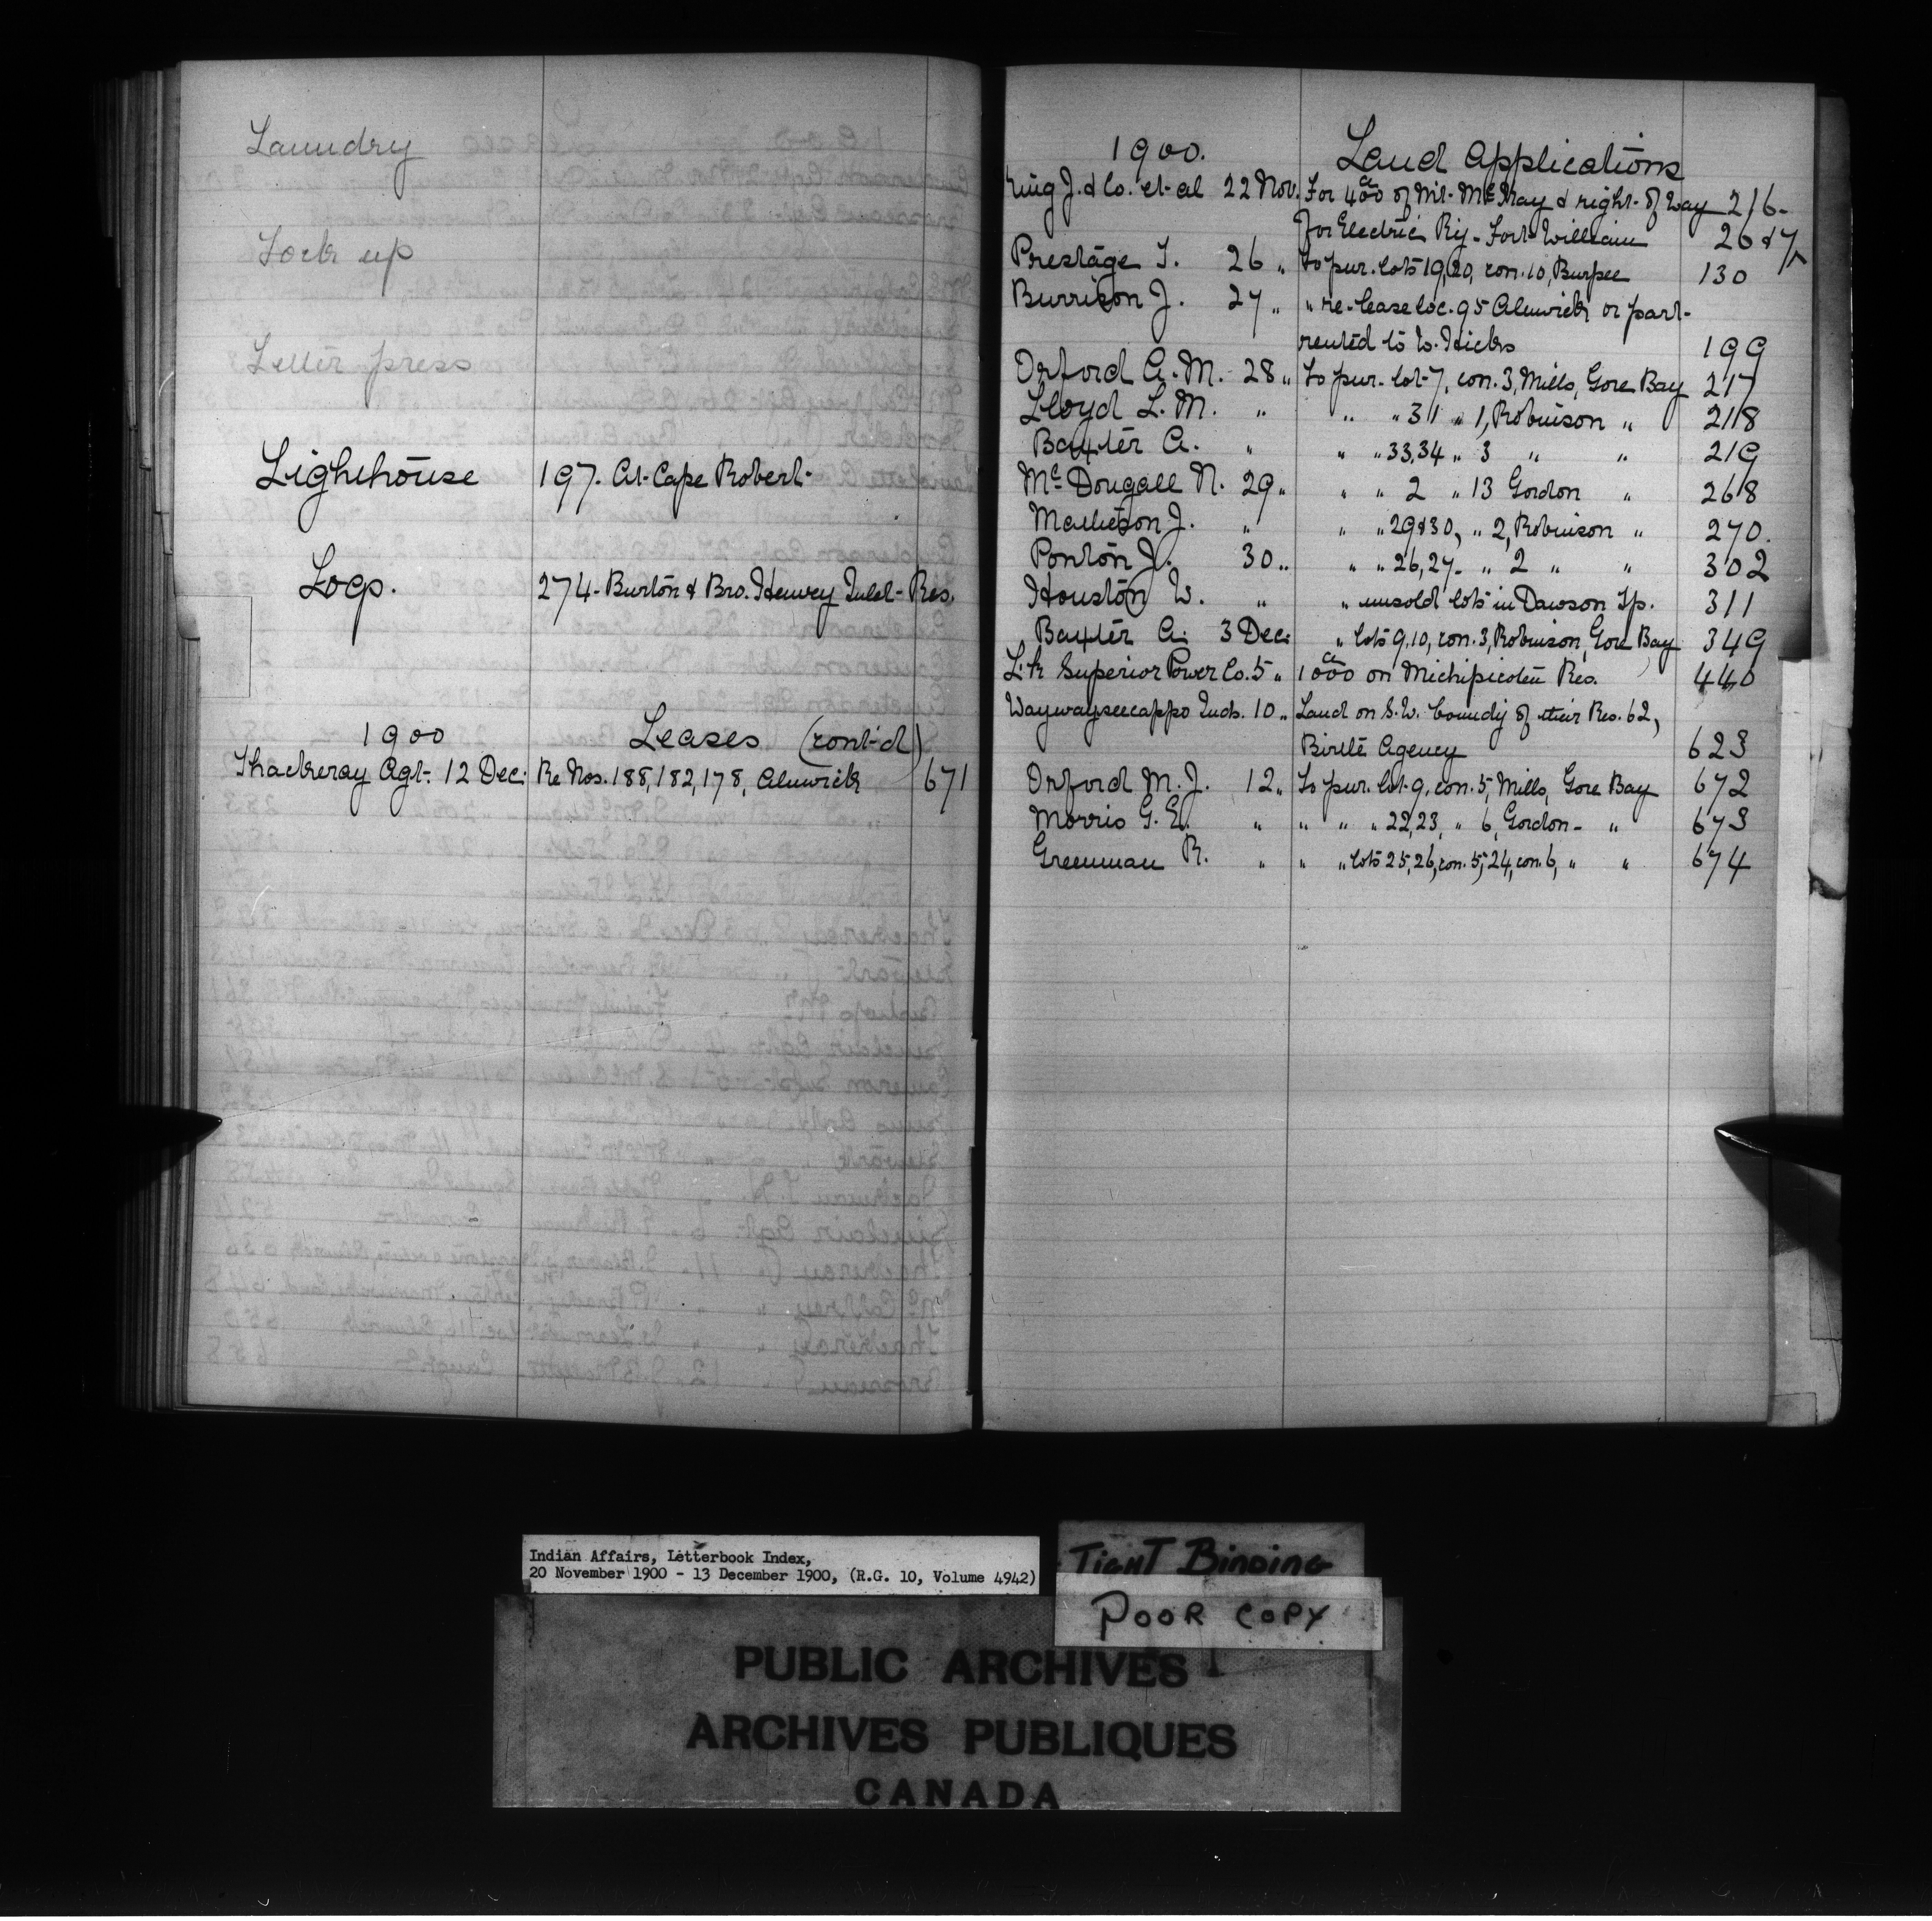 Laundry
Lock up
Letter press
Lighthouse 197. At Cape Robert
Logs. 274 - Burton & Bro. Henvey Inlet Res.
1900 Leases (cont'd)
Thackeray Agt. 12 Dec. Re Nos. 188, 182, 178, Alnwick 671
1900. Land Applications
King J. & Co. et al 22 Nov. For 400a of Mt. McKay & right of way 26-
for Electric Ry - Fort William 26 & 7
Prestage T. 26 " To pur. lots 19, 20, con. 10, Burpee 130
Burrison J. 27 " " re-lease loc. 95 Alnwick or part
rented to W. Hicks 199
Orford A. M. 28 " To pur. lot 7, con. 3, Mills, Gore Bay 217
Lloyd L. M. " " " 31 " 1, Robinson " 218
Baxter A. " " " 33,34 " 3 " " 219
McDougall N. 29 " " " 2 " 13 Gordon " 268
Matheson J. " " " 29 & 30, " 2, Robinson " 270.
Ponton J. 30 " " " 26, 27 - " 2 " " 302
Houston W. " " unsold lots in Dawson Tp. 311
Baxter A. 3 Dec. " lots 9, 10, con. 3, Robinson, Gore Bay 349
Lk Superior Power Co. 5 " 1000a on Michipicoten Res. 440
Waywayseecappo Inds. 10 " Land on S.W. boundy of their Res. 62,
Birtle Agency 623
Orford M. J. 12 " To pur. lot 9, con. 5, Mills, Gore Bay 672
Morris G. E. " " " " 22, 23, " 6, Gordon - " 673
Greenman R. " " " lots 25, 26, con. 5, 24, con. 6, " " 674
Indian Affairs, Letterbook Index,
20 November 1900 - 13 December 1900, (R.G. 10, Volume 4942)
TIGHT BINDING
POOR COPY
PUBLIC ARCHIVES
ARCHIVES PUBLIQUES
CANADA